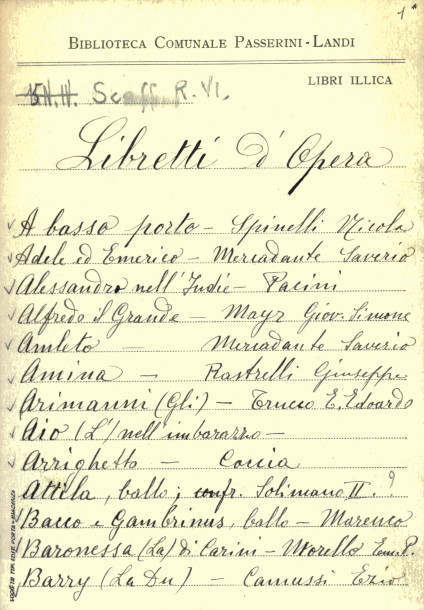 1*
BIBLIOTECA COMUNALE PASSERINI-LANDI
LIBRI ILLICA
R. VI.
Libretti d'Opera
A basso porto – Spinelli Nicola
Adele ed Emerico – Mercadante Saverio
Alessandro nell'Indie – Pacini
Alfredo il Grande – Mayr Giov. Simone
Amleto – Mercadante Saverio
Amina – Rastrelli Giuseppe
Arimanni (Gli) – Trucco E. Edoardo
Aio (L') nell'imbarazzo –
Arrighetto – Coccia
Attila, ballo; confr. Solimano II. ?
Bacco e Gambrinus, ballo – Marenco
Baronessa (La) di Carini – Morello Em. P.
Barry (La Du) – Camussi Ezio